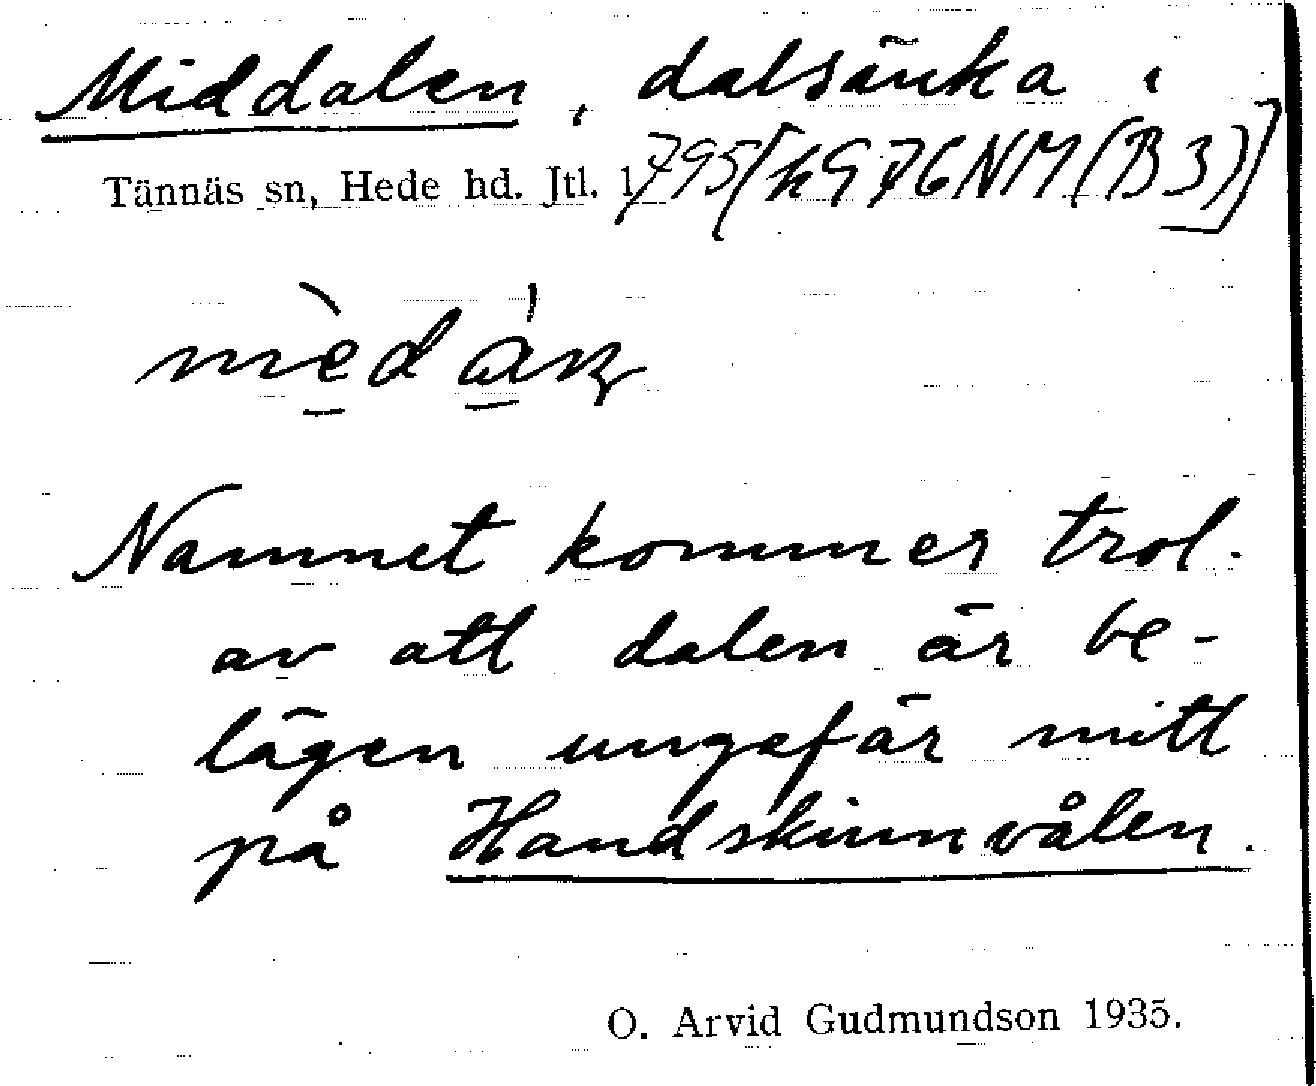 Middalen, dalsänka i
Tännäs sn, Hede hd. Jtl. 1795 [k976NM(B3)]
Namnet kommer trol.
av att dalen är be-
lägen ungefär mitt
på Handskinnvålen.
O. Arvid Gudmundson 1935.